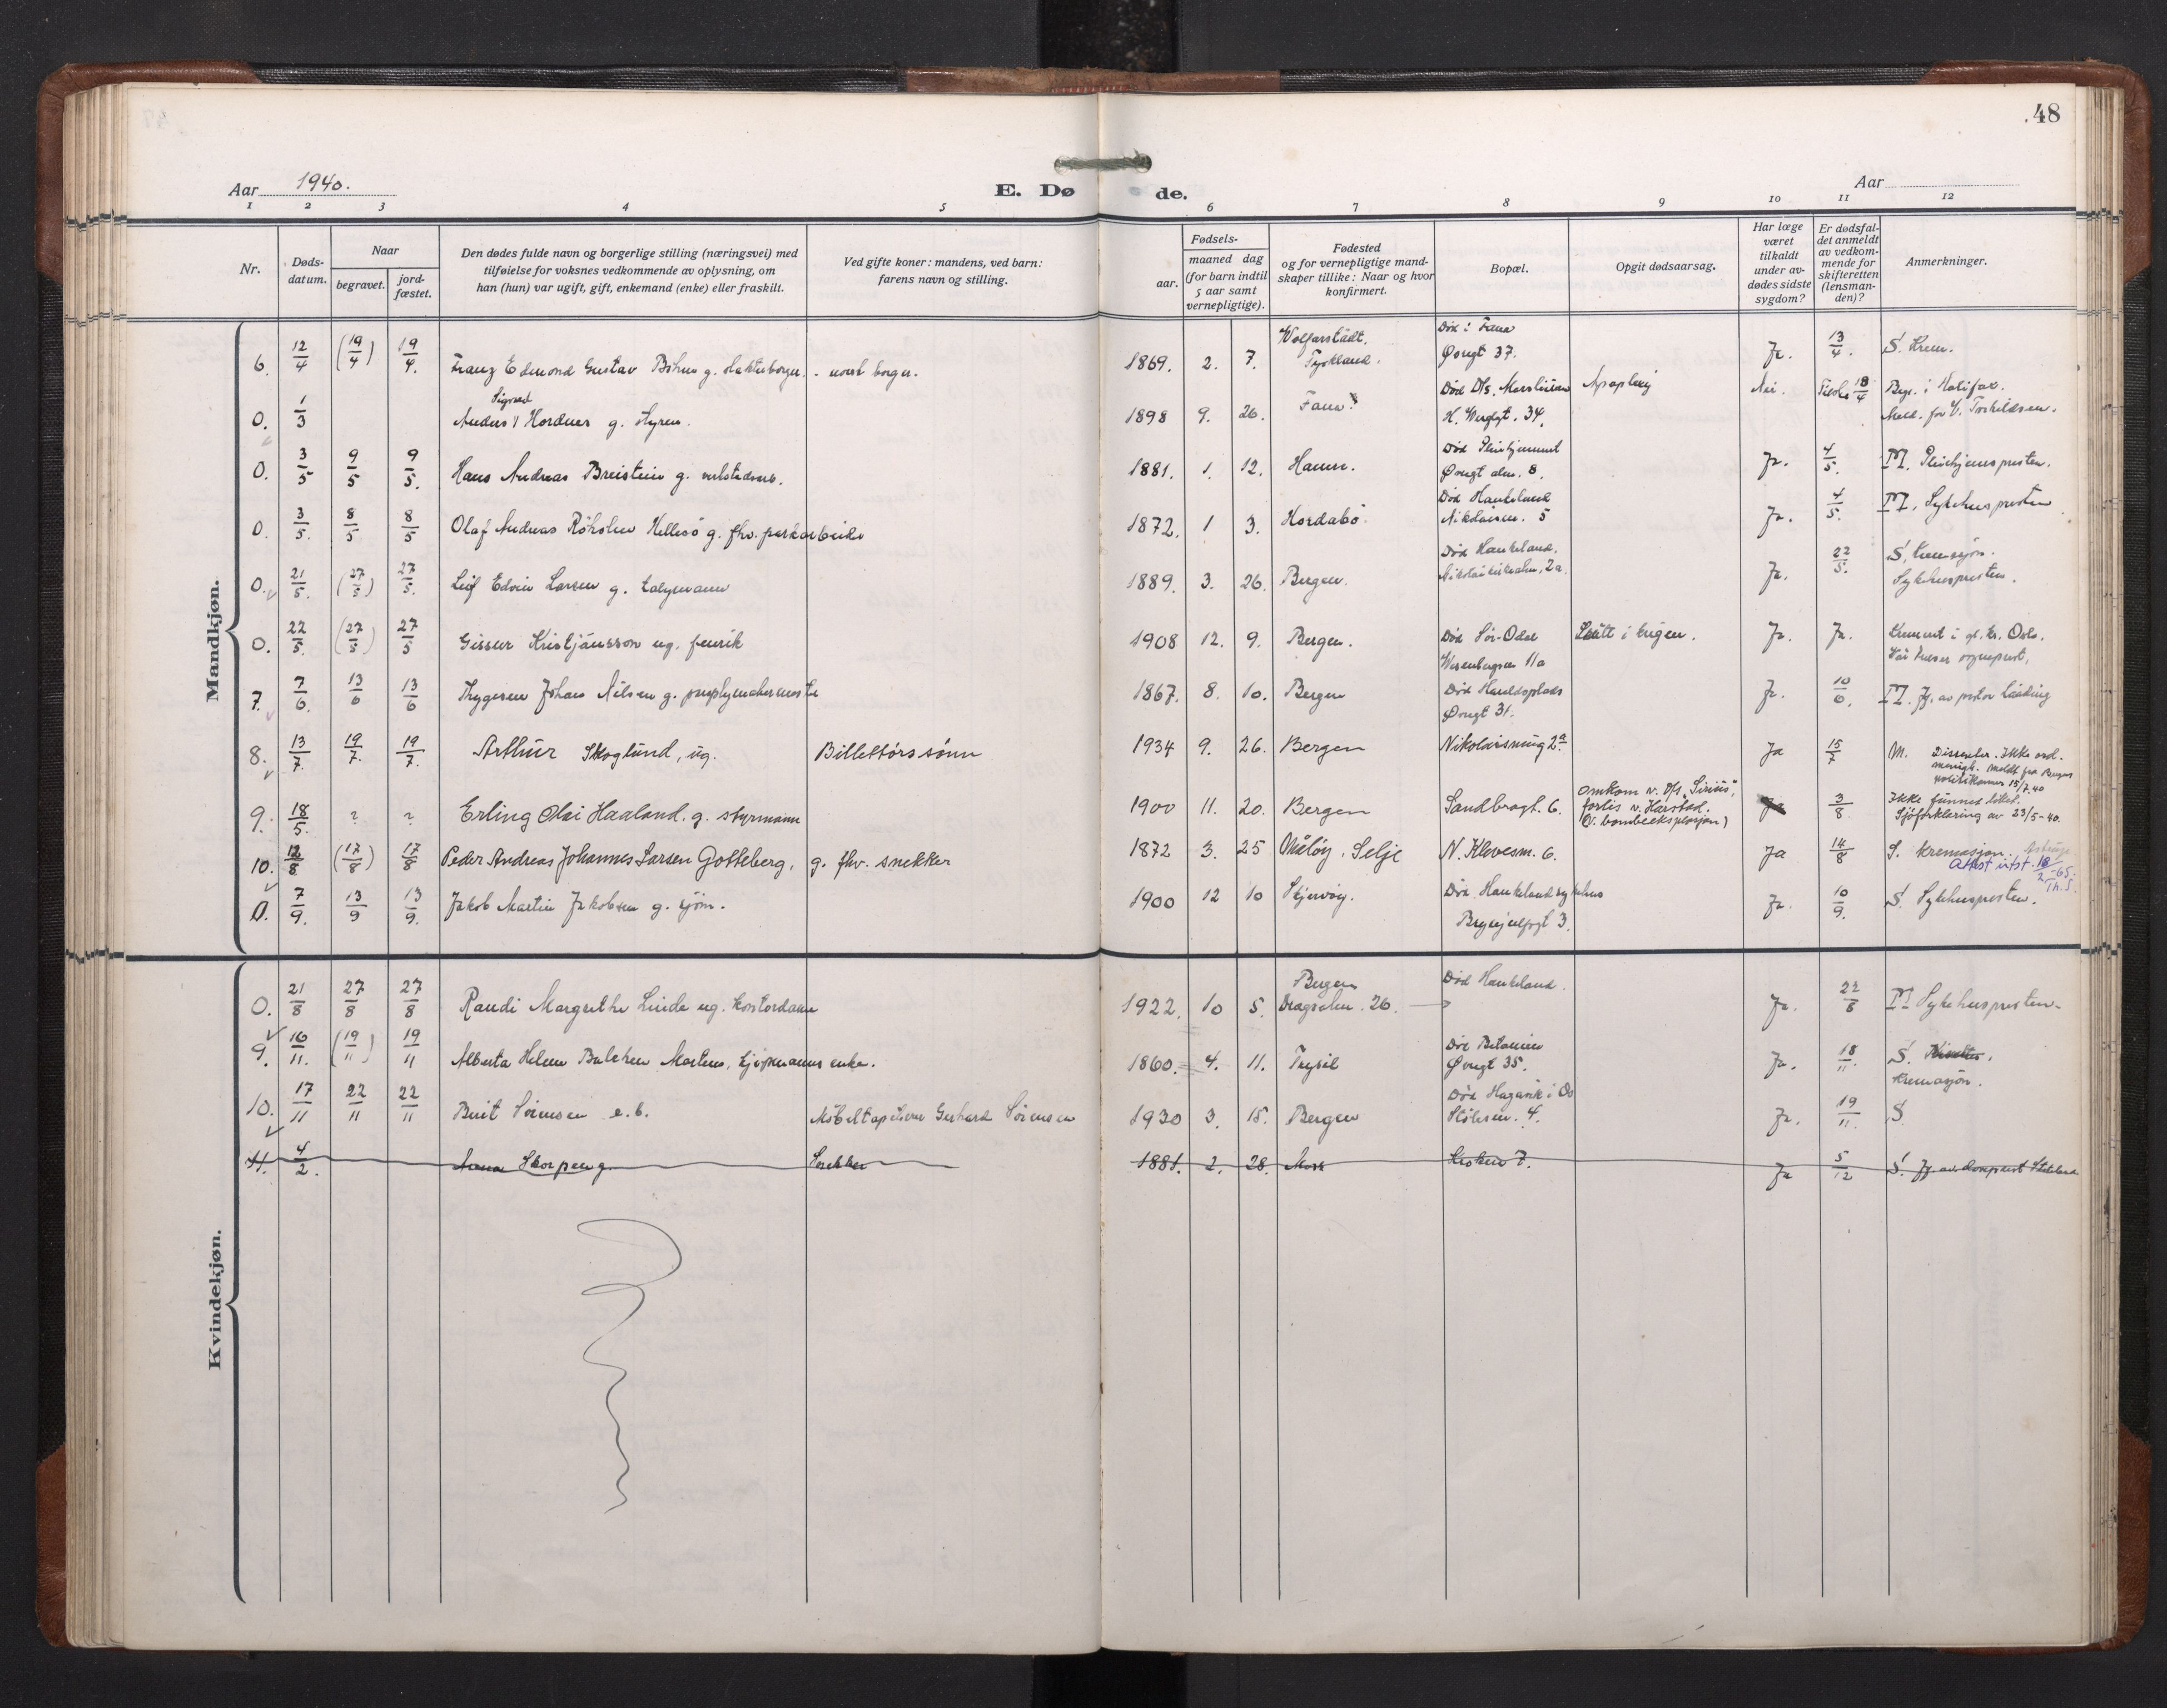 48
Aar 1940.
E. Dø de.
Aar
1 2 3 4 5 6 7 8 9 10 11 12
Nr.
Døds-
datum.
Naar
begravet.
jord-
fæstet.
Den dødes fulde navn og borgerlige stilling (næringsvei) med
tilføielse for voksnes vedkommende av oplysning, om
han (hun) var ugift, gift, enkemand (enke) eller fraskilt.
Ved gifte koner: mandens, ved barn:
farens navn og stilling.
Fødsels-
aar. maaned dag
(for barn indtil
5 aar samt
vernepligtige).
Fødested
og for vernepligtige mand-
skaper tillike: Naar og hvor
konfirmert.
Bopæl.
Opgit dødsaarsag.
Har læge
været
tilkaldt
under av-
dødes sidste
sygdom?
Er dødsfal-
det anmeldt
av vedkom-
mende for
skifteretten
(lensman-
den)?
Anmerkninger.
Mandkjøn.
6. 12/4 (19/4) 19/4. Franz Edmond Gustav Böhme g. - norsk borger. 1869. 2. 7. Wolfarstädt, Tyskland. Død i Fana Øvregt 37. Ja. 13/4. S. Krem.
0. 1/3 Anders Sigurd Hordnes g. styrm. 1898 9. 26. Fana. Død D/s. H. Wergsgt. 34. Apopleksi Nei. 18/4 Begr. i Halifax. Meld. fra V. Torkildsen.
0. 3/5 9/5 9/5. Hans Andreas Breistein g. verkstedsarb. 1881. 1. 12. Hamre. Død Pleiehjemmet Øvregt alm. 8. Ja. 4/5. M. Pleiehjemspresten.
0. 3/5. 8/5 8/5 Olaf Andreas Röksten Hellesö g. fhv. parkarbeider 1872. 1 3. Hordabö. Død Haukeland Nikolaism. 5 Ja. 4/5. M. Sykehuspresten
0. 21/5. (27/5) 27/5. Leif Edvin Larsen g. tallymann 1889. 3. 26. Bergen. Død Haukeland. Nikolaikirkealm. 2a. Ja. 22/5. S. Kremasjon. Sykehuspresten.
0. 22/5. (27/5) 27/5 Gissur Kristjánsson ug. fenrik 1908 12. 9. Bergen. Død Sør-Odal Wesenbergsm 11a Skutt i krigen. Ja. Ja. Kremert i gl. kr. Oslo. Vår Frelser sogneprest.
7. 7/6. 13/6 13/6 Thygesen Johan Nilsen g. 1867. 8. 10. Bergen Død Haraldsplads Øvregt 31. Ja. 10/6. M. Jf. av pastor
8. 13/7. 19/7. 19/7. Arthur Skoglund, ug. Billettörs sönn 1934 9. 26. Bergen Nikolaismug 2a Ja 15/7 M. Dissenter. Ikke ord. menigh. Meldt fra Bergens politikammer 15/7. 40
9. 18/5. ? ? Erling Olai Haaland. g. styrmann 1900 11. 20. Bergen Sandbrogt. 6. Omkom v. D/s "Sirius", forlis v. Harstad. (v. bombeeksplosjon) Ja 3/8 Ikke funnet liket. Sjöforklaring av 23/5-40.
10. 12/8 (17/8) 17/8 Peder Andreas Johannes Larsen Gotteberg, g. fhv. snekker 1872 3. 25 Måløy, Selje N. Klevesm. 6. Ja 14/8 S. Kremasjon. Attest utst. 18/2-65. Th.S.
0. 7/9. 13/9 13/9. Jakob Martin Jakobsen g. sjöm. 1900 12 10 Skjervöy. Død Haukeland sykehus 3. Ja. 10/9. S. Sykehuspresten.
Kvindekjøn.
0. 21/8 27/8 27/8 Randi Margrethe Linde ug. kontordame 1922. 10 5. Bergen Dragesalm. 26. Død Haukeland. Ja. 22/8 M. Sykehuspresten.
9. 16/11. (19/11) 19/11 Alberta Helene Balchen Martens, kjöpmanns enke. 1860. 4. 11. Trysil Død Betanien Øvregt 35. Ja. 18/11. S. Kremasjon.
10. 17/11 22/11 22/11 Berit Sörensen e. b. Möbeltapetserer Gerhard Sörensen 1930 3. 15. Bergen Død Hagavik i Os Stölesm. 4. Ja. 19/11. S.
11. 4/2. Anna Skorpen g. Snekker 1881. 2. 28. Moss Kroken 7. Ja 5/12 S. Jf. av domprost